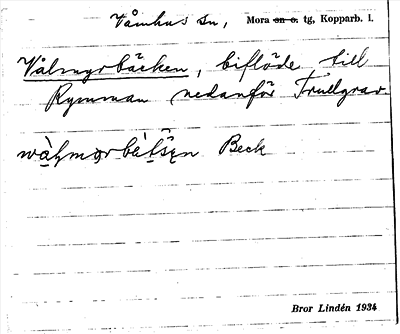 Våmhus sn, Mora sn o. tg, Kopparb. l.
Vålmyrbäcken, biflöde till
Rymman nedanför Trullgrav
Beck
Bror Lindén 1934